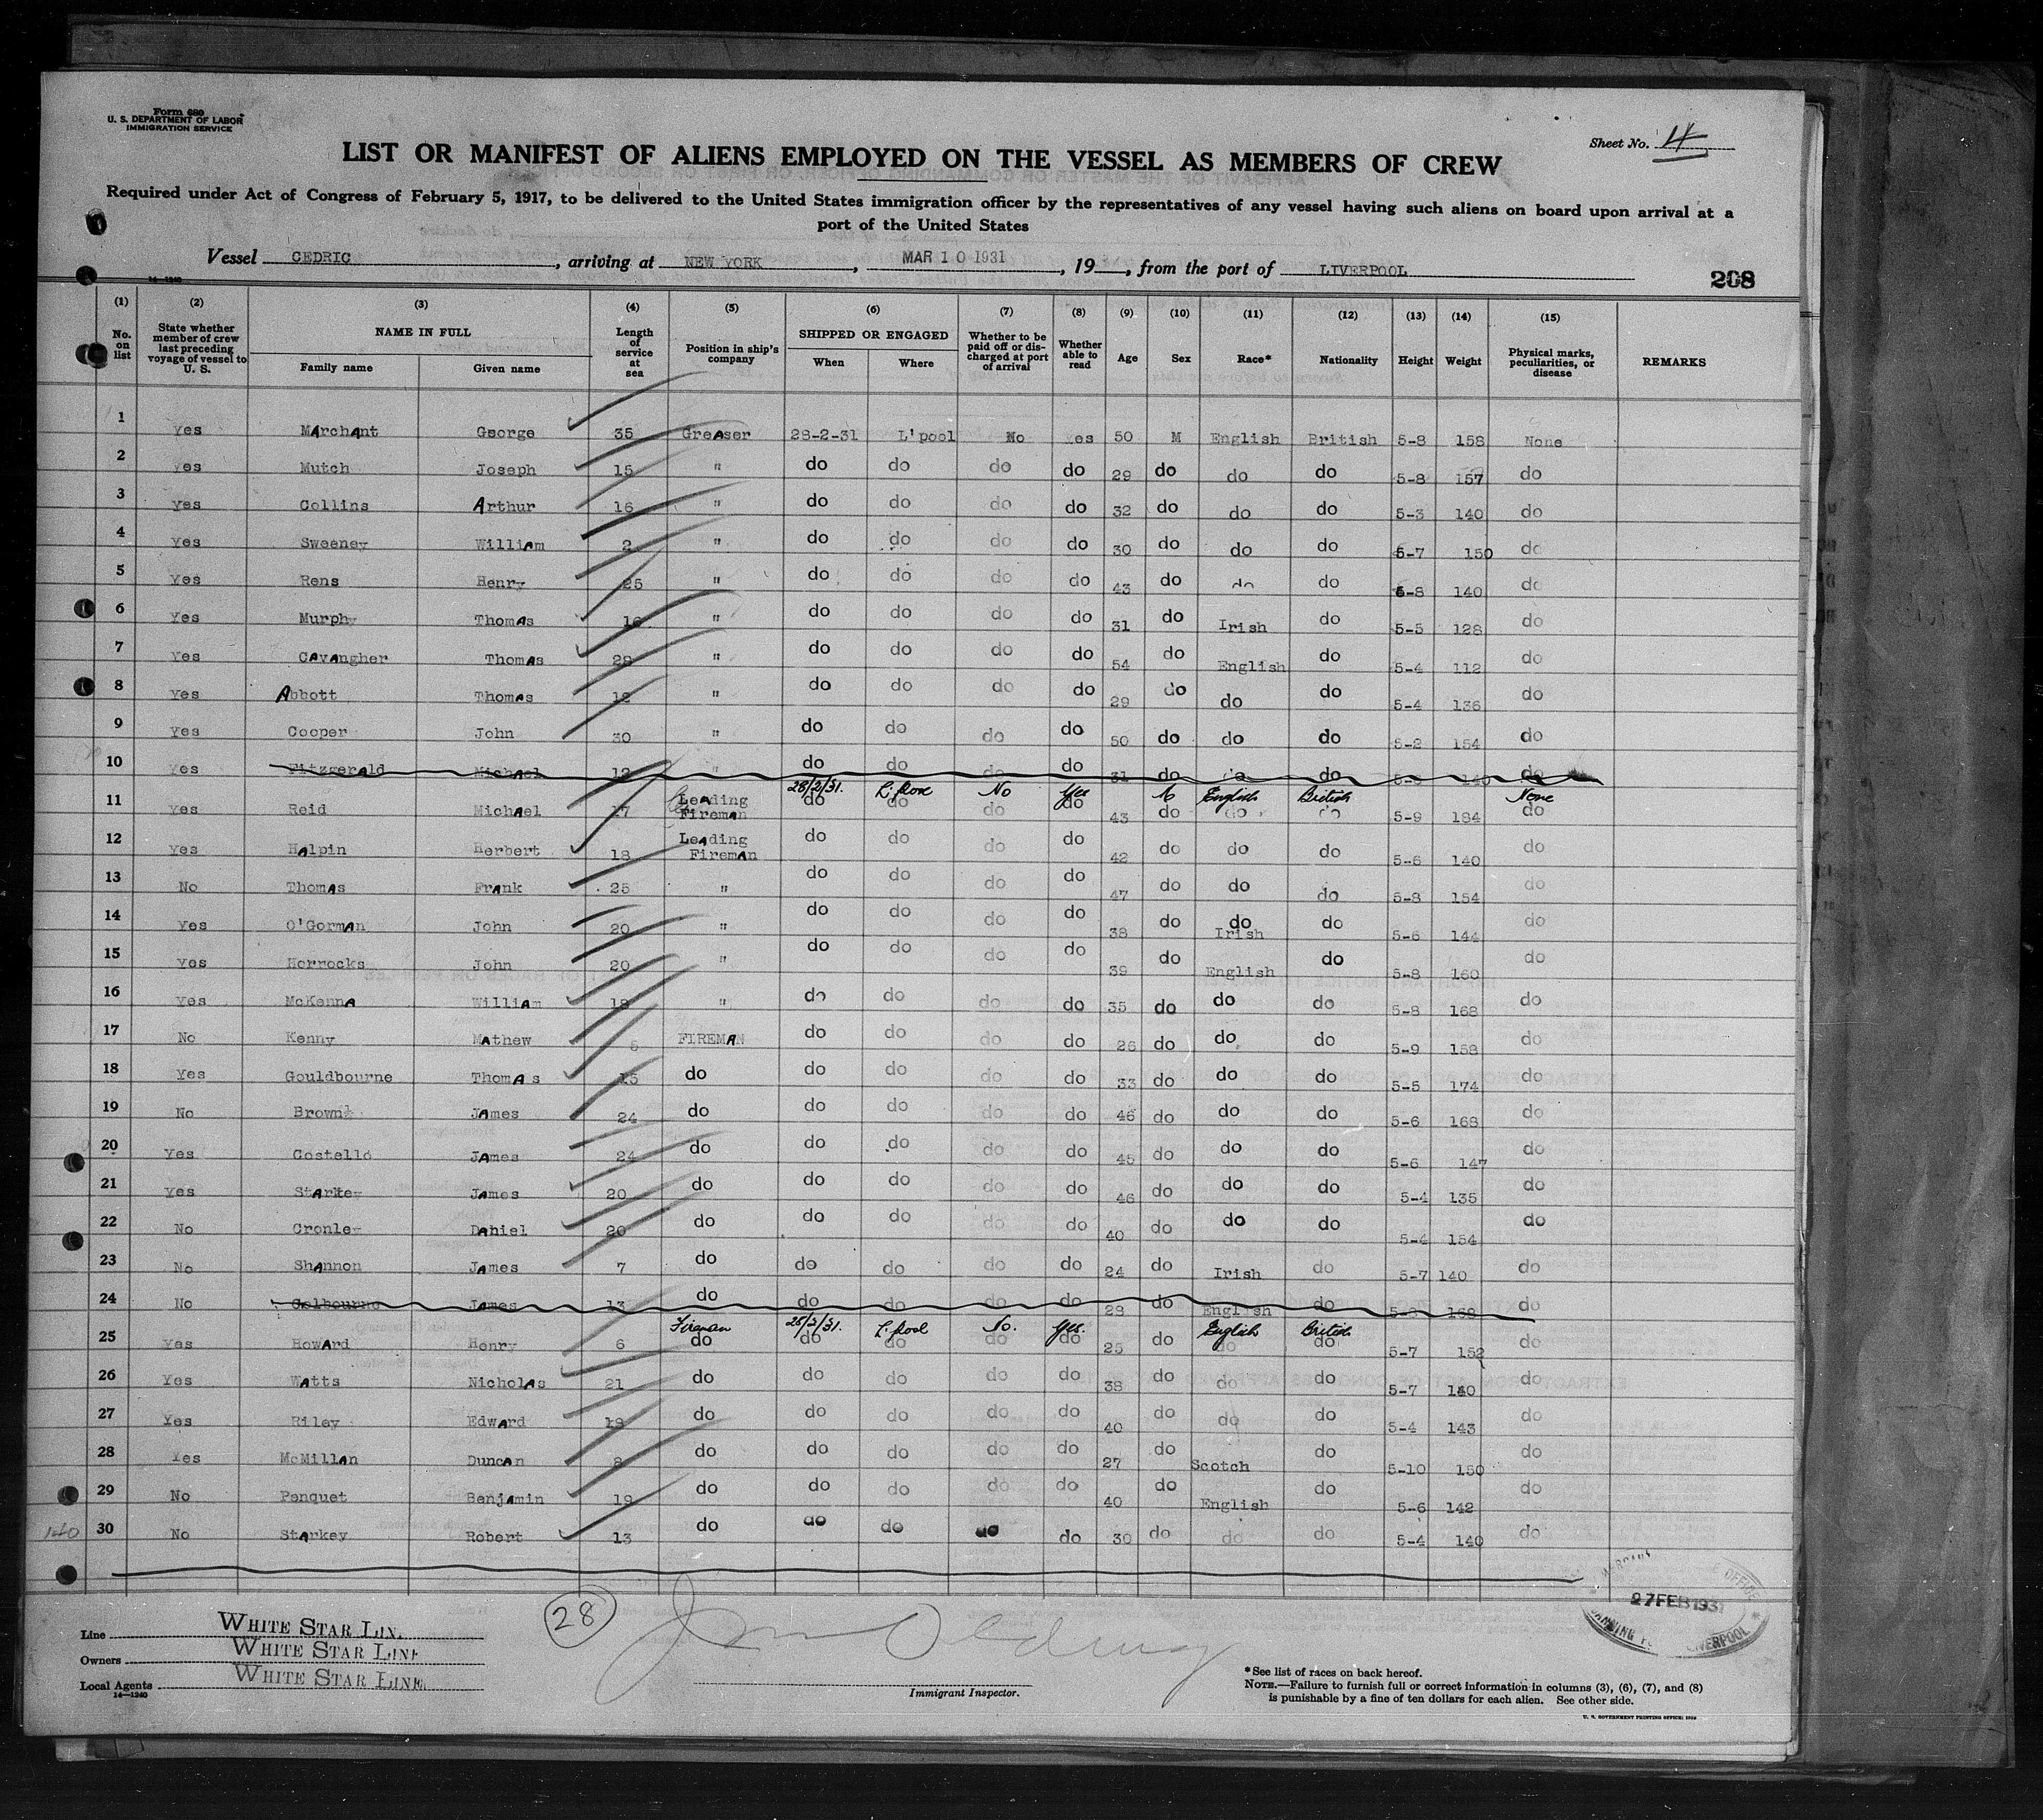 Form 680
U. S. DEPARTMENT OF LABOR
IMMIGRATION SERVICE
Sheet No. 4
LIST OR MANIFEST OF ALIENS EMPLOYED ON THE VESSEL AS MEMBERS OF CREW
Required under Act of Congress of February 5, 1917, to be delivered to the United States immigration officer by the representatives of any vessel having such aliens on board upon arrival at a
port of the United States
Vessel CEDRIC, arriving at NEW YORK, MAR 10 1931, 19, from the port of LIVERPOOL
14-1240
208
(1) (2) (3) (4) (5) (6) (7) (8) (9) (10) (11) (12) (13) (14) (15)
No. on list State whether member of crew last preceding voyage of vessel to U. S. NAME IN FULL Family name Given name Length of service at sea Position in ship's company SHIPPED OR ENGAGED When Where Whether to be paid off or discharged at port of arrival Whether able to read Age Sex Race* Nationality Height Weight Physical marks, peculiarities, or disease REMARKS
1 Yes Marchant George 35 Greaser 28-2-31 L'pool No Yes 50 M English British 5-8 158 None
2 Yes Mutch Joseph 15 " do do do do 29 do do do 5-8 157 do
3 Yes Collins Arthur 16 " do do do do 32 do do do 5-3 140 do
4 Yes Sweeney William 2 " do do do do 30 do do do 5-7 150 do
5 Yes Rens Henry 25 " do do do do 43 do do do 5-8 140 do
6 Yes Murphy Thomas 16 " do do do do 31 do Irish do 5-5 128 do
7 Yes Cavangher Thomas 28 " do do do do 54 do English do 5-4 112 do
8 Yes Abbott Thomas 12 " do do do do 29 do do do 5-4 136 do
9 Yes Cooper John 30 " do do do do 50 do do do 5-2 154 do
10 Yes Fitzgerald Michael 12 " do do do do 31 do do do 140 do
28/2/31. L'pool No Yes M English British None
11 Yes Reid Michael 17 Leading Fireman do do do do 43 do do do 5-9 184 do
12 Yes Halpin Herbert 18 Leading Fireman do do do do 42 do do do 5-6 140 do
13 No Thomas Frank 25 " do do do do 47 do do do 5-8 154 do
14 Yes O'Gorman John 20 " do do do do 38 do do Irish do 5-6 144 do
15 Yes Horrocks John 20 " do do do do 39 do English do 5-8 160 do
16 Yes McKenna William 18 " do do do do 35 do do do 5-8 168 do
17 No Kenny Mathew FIREMAN do do do do 26 do do do 5-9 158 do
18 Yes Gouldbourne Thomas 15 do do do do do 33 do do do 5-5 174 do
19 No Brown James 24 do do do do do 46 do do do 5-6 168 do
20 Yes Costello James 24 do do do do do 45 do do do 5-6 147 do
21 Yes Starkey James 20 do do do do do 46 do do do 5-4 135 do
22 No Cronley Daniel 20 do do do do do 40 do do do 5-4 154 do
23 No Shannon James 7 do do do do do 24 do Irish do 5-7 140 do
24 No Colbourne James 13 do do do do do 28 do English do 5-8 168 do
Fireman 28/2/31. L'pool No. Yes. English British
25 Yes Howard Henry 6 do do do do do 25 do do do 5-7 152 do
26 Yes Watts Nicholas 21 do do do do do 38 do do do 5-7 140 do
27 Yes Riley Edward 19 do do do do do 40 do do do 5-4 143 do
28 Yes McMillan Duncan 8 do do do do do 27 do Scotch do 5-10 150 do
29 No Penquet Benjamin 19 do do do do do 40 do English do 5-6 142 do
30 No Starkey Robert 13 do do do do do 30 do do do 5-4 140 do
27 FEB 1931
LIVERPOOL
28
Line WHITE STAR LIN
Owners WHITE STAR LINE
Local Agents WHITE STAR LINE
14-1240
Immigrant Inspector.
*See list of races on back hereof.
NOTE.—Failure to furnish full or correct information in columns (3), (6), (7), and (8)
is punishable by a fine of ten dollars for each alien. See other side.